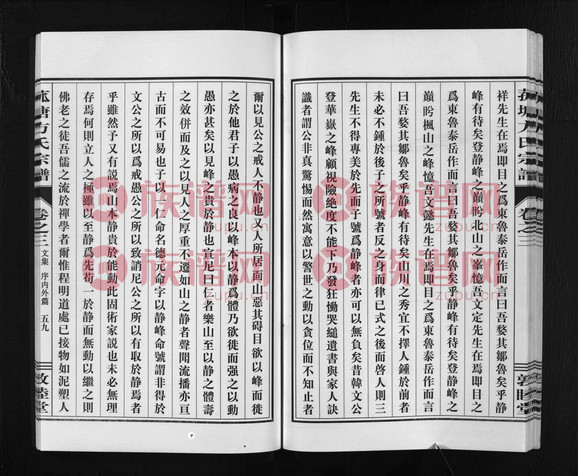 祥先生在焉即目之爲東魯泰岳作而言曰吾婺其鄒魯矣乎靜
峰有待矣登靜峰之巔盻北山之峯憶吾文定先生在焉即目之
爲東魯泰岳作而言曰吾婺其鄒魯矣乎靜峰有待矣登靜峰之
巔盻楓山之峰憶吾文懿先生在焉即目之爲東魯泰岳作而言
曰吾婺其鄒魯矣乎靜峰有待矣山川之秀宜不擇人鍾於前者
未必不鍾於後子之所號者反之身而律己式之後而啓人則三
先生不得專美於先而子號爲靜峰者亦可以無負矣昔韓文公
登華嶽之峰顧視險絶度不能下乃發狂慟哭縋遺書與家人訣
識者謂公非真驚惕而然寓意以警世之動以貪位而不知止者
爾以見公之戒人不靜也又人所居面山惡其碍目欲以峰而徙
之於他君子以愚病之良以峰本以靜爲體乃欲徙而强之以動
愚亦甚矣以見峰之貴於靜也宣尼曰仁者樂山至以靜之體壽
之效併而及之以見人之厚重不遷如山之靜者聲聞流播亦亘
古而不可易也子以仁命名德元命字以靜峰命號謂非得於
文公之所以爲戒愚公之所以致誚尼公之所以有取於靜焉者
乎雖然子又有説焉山本靜貴於能動此固術家説也未必無理
存焉何則立人之極雖以至靜爲先苟一於靜而無動以繼之則
佛老之徒吾儒之流於禪學者爾惟程明道處己接物如泥塑人
菰塘方氏宗譜
卷之三
文集 序内外篇 五九
敦睦堂
族譜網